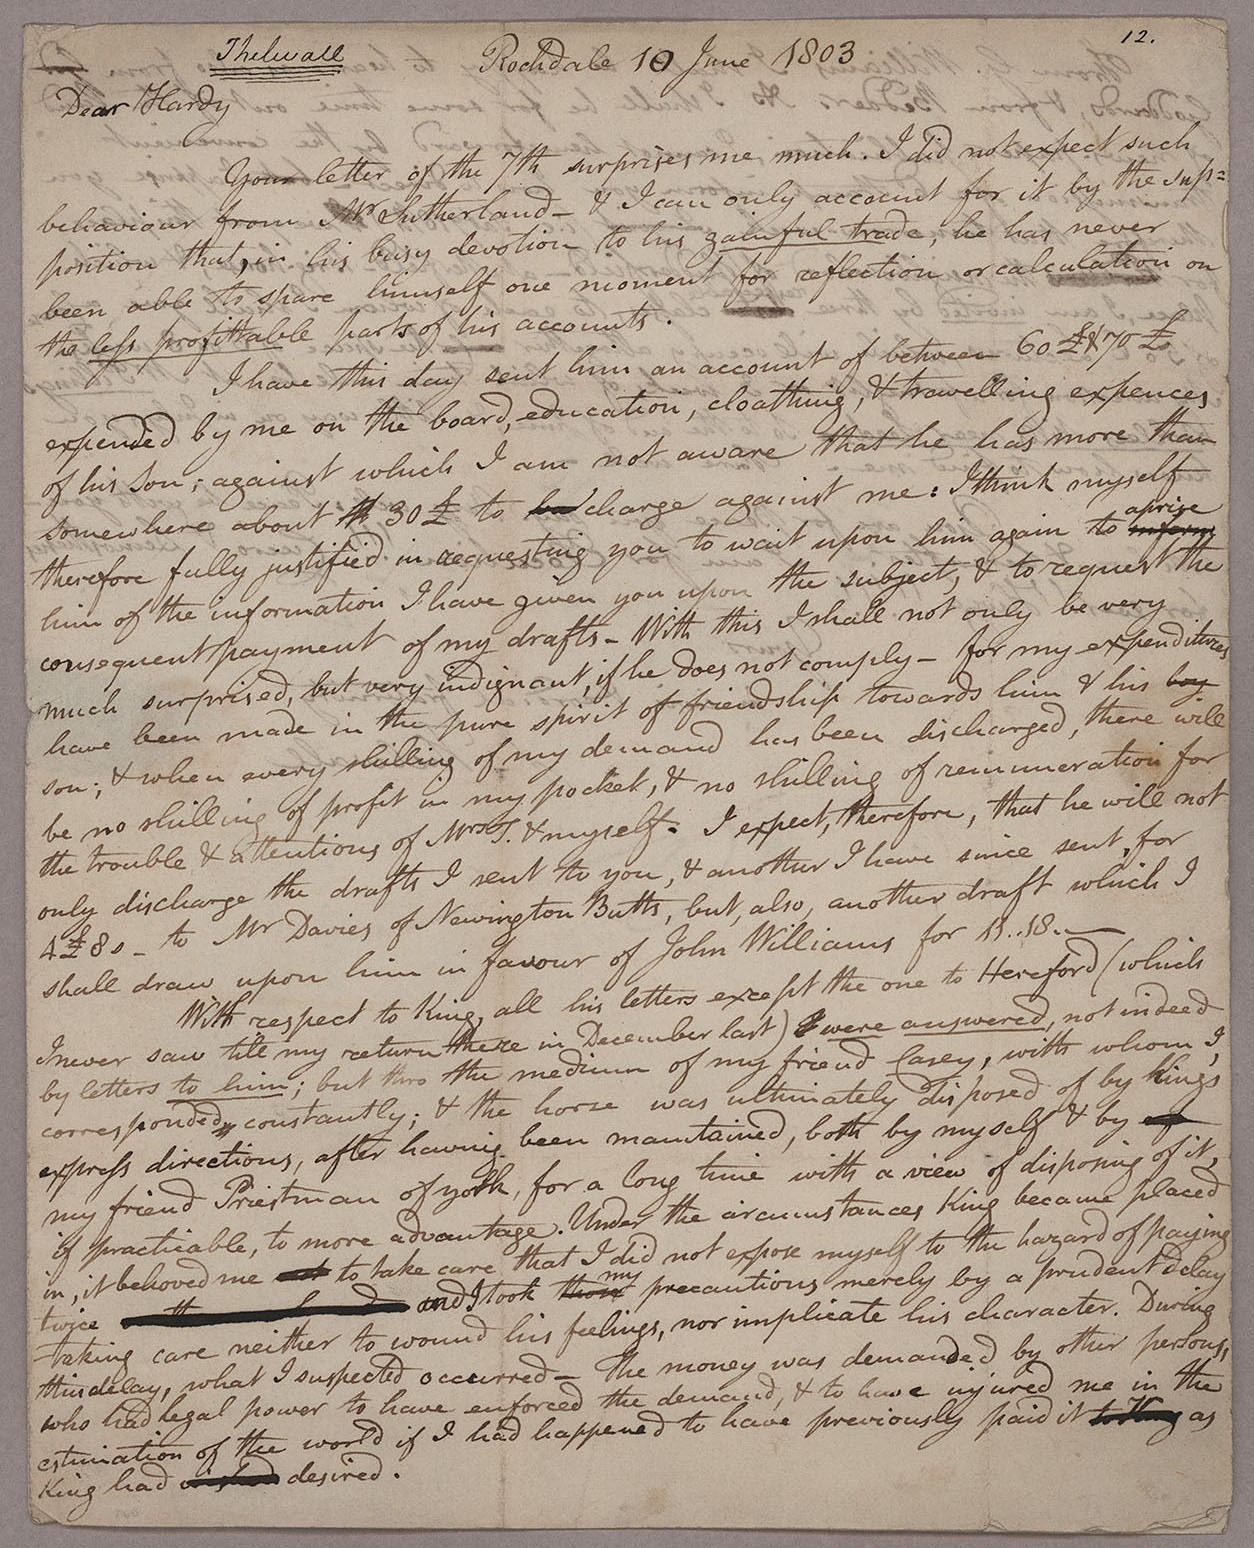 Thelwall
12.
Rochdale 10 June 1803
Dear Hardy
Your letter of the 7th surprises me much. I did not expect such
behaviour from Mr Sutherland – & I can only account for it by the sup=
position that, in his busy devotion to his gainful trade, he has never
been able to spare himself one moment for reflection or calculation on
the less profittable parts of his accounts.
I have this day sent him an account of between 60£ & 70£
expended by me on the board, education, cloathing, & travelling expences
of his son; against which I am not aware that he has more than
somewhere about 30£ to charge against me: I think myself
therefore fully justified in requesting you to wait upon him again to aprise inform
him of the information I have given you upon the subject, & to request the
consequent payment of my drafts – With this I shall not only be very
much surprised, but very indignant, if he does not comply – for my expenditures
have been made in the pure spirit of friendship towards him & his boy
son; & when every shilling of my demand has been discharged, there will
be no shilling of profit in my pocket, & no shilling of remuneration for
the trouble & attentions of Mrs T. & myself. I expect, therefore, that he will not
only discharge the drafts I sent to you, & another I have since sent, for
4£ 8s – to Mr Davies of Newington Butts, but, also, another draft which I
shall draw upon him in favour of John Williams for 11..18.–
With respect to King, all his letters except the one to Hereford (which
I never saw till my return there in December last) were answered, not indeed
by letters to him; but thro the medium of my friend Casey, with whom I,
corresponded, constantly; & the horse was ultimately disposed of by King's
express directions, after having been maintained, both by myself & by
my friend Priestman of York, for a long time with a view of disposing of it,
if practicable, to more advantage. Under the circumstances King became placed
in, it behoved me to take care that I did not expose myself to the hazard of paying
twice and I took my precautions merely by a prudent delay
taking care neither to wound his feelings, nor implicate his character. During
this delay, what I suspected occurred – The money was demanded by other persons,
who had legal power to have enforced the demand, & to have injured me in the
estimation of the world if I had happened to have previously paid it to King as
King had desired.